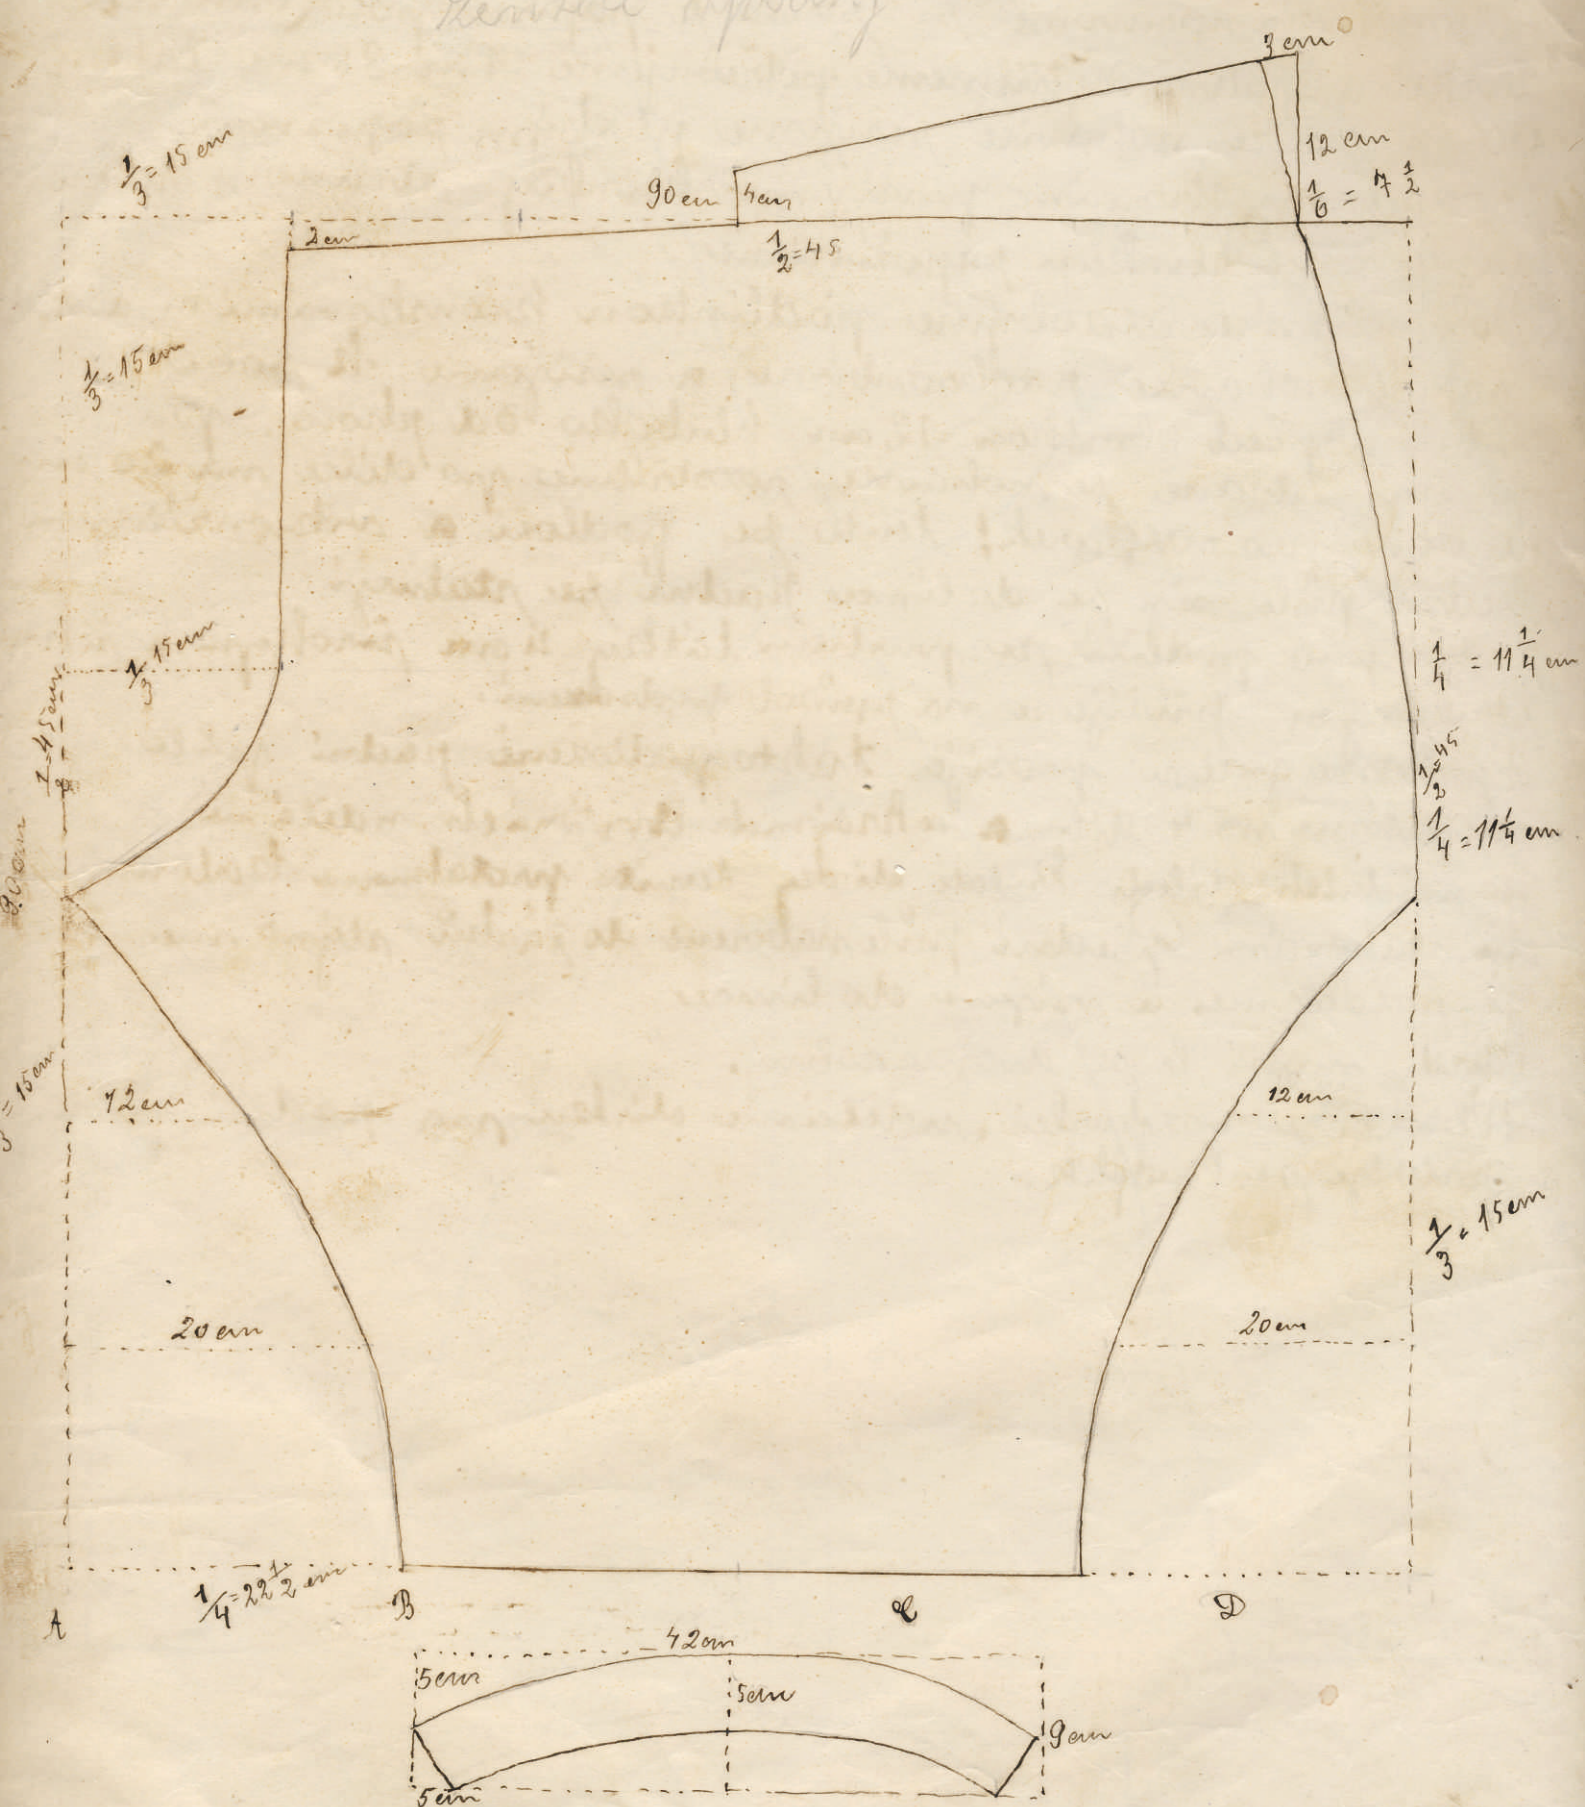 3 cm
12 cm
1/6 = 7 1/2
1/3 = 15 cm
90 cm
4 cm
2 cm
1/2 = 45
1/3 = 15 cm
1/3 15 cm
1/2 = 45 cm
90 cm
1/4 = 11 1/4 cm
1/2 = 45
1/4 = 11 1/4 cm
= 15 cm
12 cm
12 cm
1/3 = 15 cm
20 cm
20 cm
1/4 = 22 1/2 cm
A B C D
42 cm
5 cm
5 cm
9 cm
5 cm